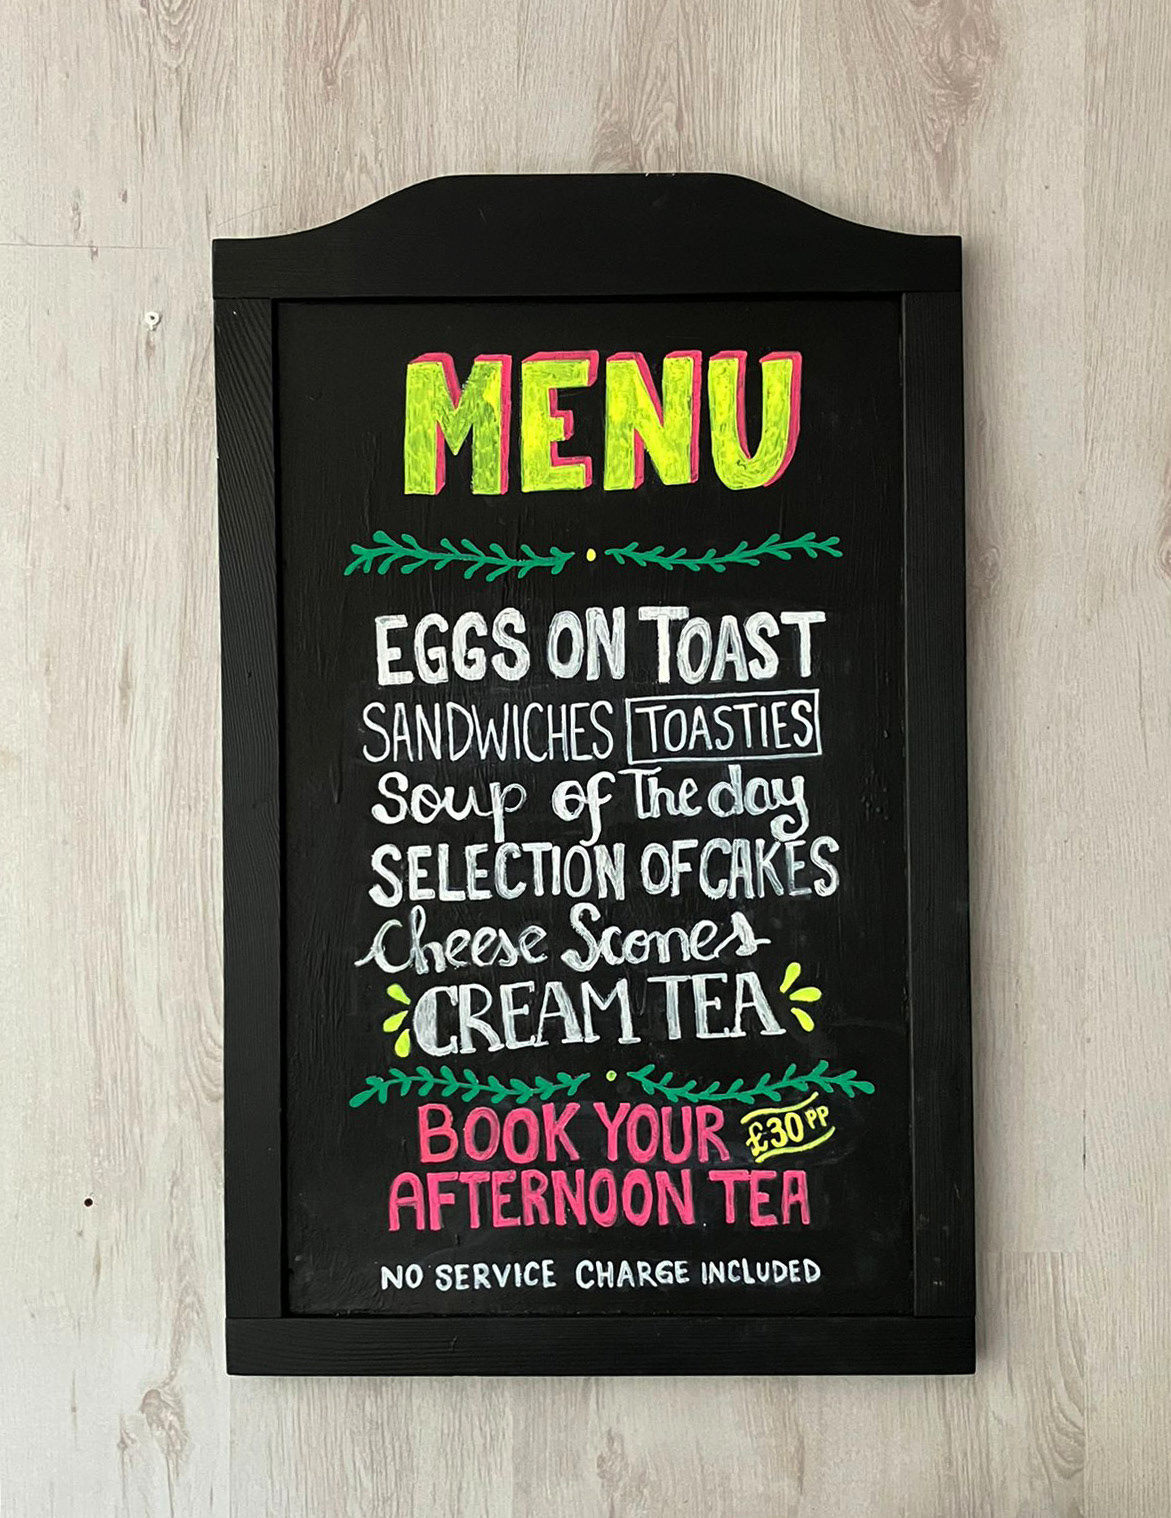 MENU
EGGS ON TOAST
SANDWICHES TOASTIES
Soup of The day
SELECTION OF CAKES
Cheese Scones
CREAM TEA
BOOK YOUR £30 PP
AFTERNOON TEA
NO SERVICE CHARGE INCLUDED